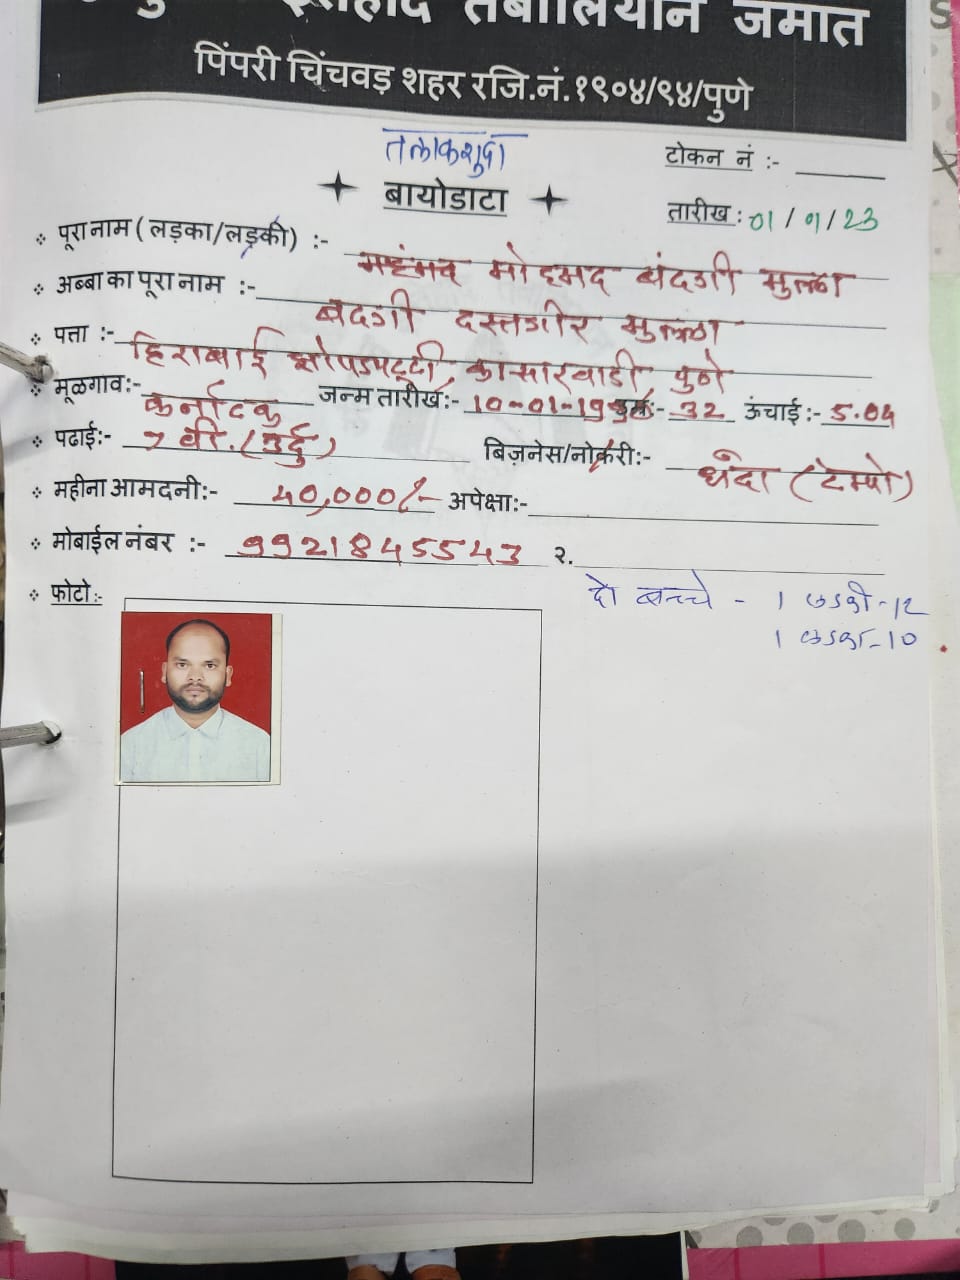 तंबोलियान जमात
पिंपरी चिंचवड़ शहर रजि.नं.१९०४/९४/पुणे
तलाकशुदा
टोकन नं :-
बायोडाटा
तारीख : 01 / 01 / 23
पूरा नाम ( लड़का/लड़की) :- मोहमद बंदगी मुल्ला
अब्बा का पूरा नाम :- बंदगी दस्तगीर मुल्ला
पत्ता :- हिराबाई झोपडपट्टी, कासारवाडी, पुणे
मूळगाव:- कर्नाटक जन्म तारीख:- 10-01-19 उम्र:- 32 ऊंचाई :- 5.04
पढाई:- 7 वी. (उर्दु) बिज़नेस/नोकरी:- धंदा (टेम्पो)
महीना आमदनी:- 40,000/- अपेक्षा:-
मोबाईल नंबर :- 9921845543 २.
फोटो:- दो बच्चे - 1 लडकी-12
1 लडका-10